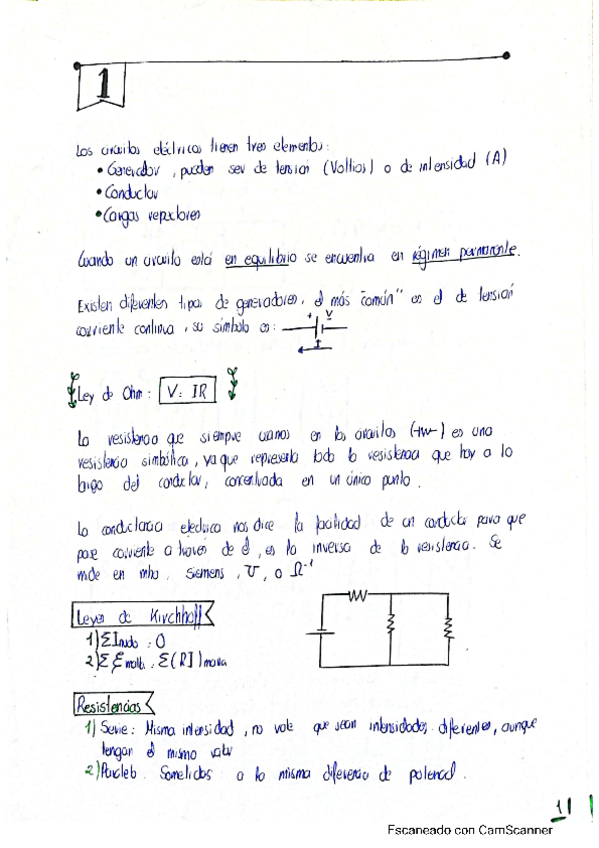 1
Los circuitos eléctricos tienen tres elementos:
• Generador, pueden ser de tensión (Voltios) o de intensidad (A)
• Conductor
• Cargas receptores
Cuando un circuito está en equilibrio se encuentra en régimen permanente.
Existen diferentes tipos de generadores, el más "común" es el de tensión
corriente continua, su símbolo es: + V
I
Ley de Ohm: V = IR
La resistencia que siempre usamos en los circuitos (-w-) es una
resistencia simbólica, ya que representa toda la resistencia que hay a lo
largo del conductor, concentrada en un único punto.
La conductancia eléctrica nos dice la facilidad de un conductor para que
pase corriente a través de él, es la inversa de la resistencia. Se
mide en mho, Siemens, ℧, o Ω⁻¹
Leyes de Kirchhoff
1) ΣInudo = 0
2) Σ ξmalla = Σ(RI)malla
Resistencias
1) Serie: Misma intensidad, no vale que sean intensidades diferentes, aunque
tengan el mismo valor
2) Paralelo: Sometidas a la misma diferencia de potencial.
1
Escaneado con CamScanner